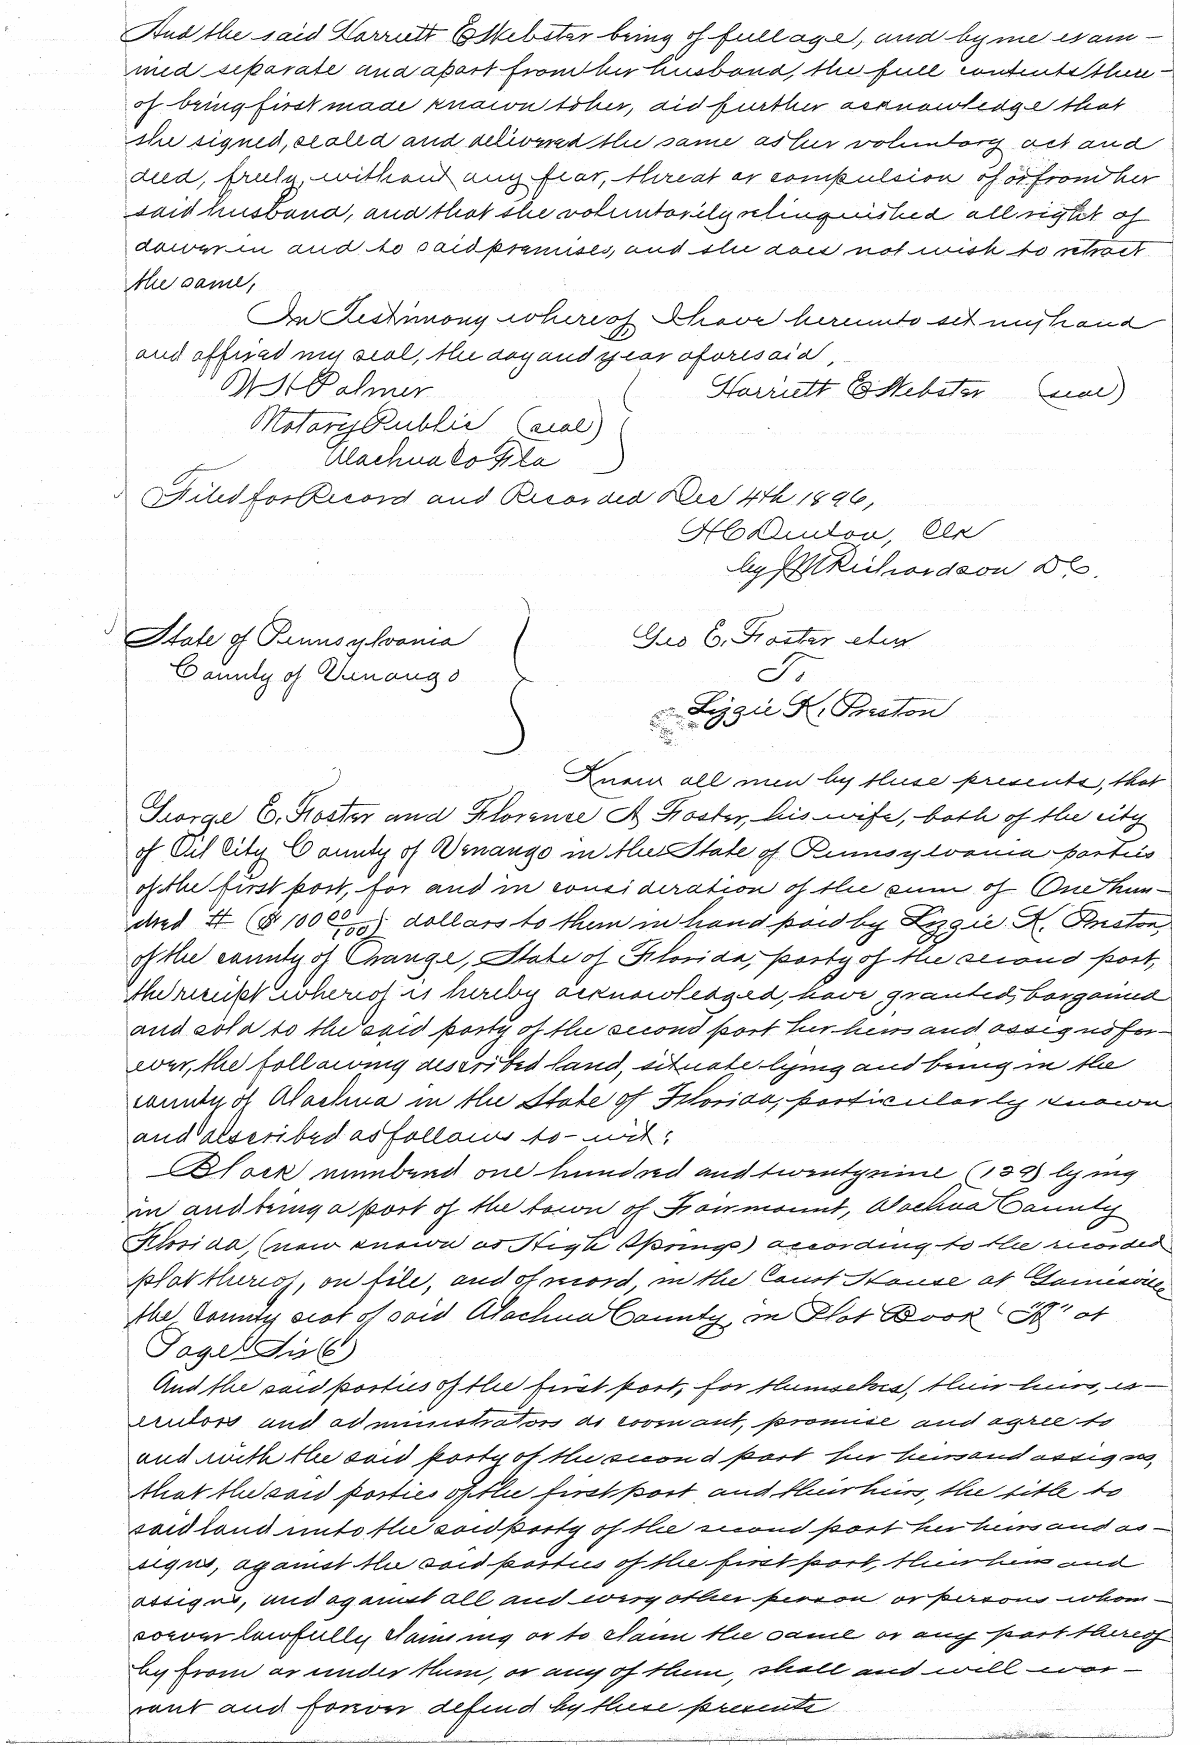 And the said Harriett E Webster being of full age, and by me exam-
ined separate and apart from her husband, the full contents there-
of being first made known to her, did further acknowledge that
she signed, sealed and delivered the same as her voluntary act and
deed, freely, without any fear, threat or compulsion of or from her
said husband, and that she voluntarily relinquished all right of
dower in and to said premises, and she does not wish to retract
the same,
In Testimony whereof I have hereunto set my hand
and affixed my seal, the day and year aforesaid,
W H Palmer
Harriett E Webster (seal)
Notary Public (seal)
Alachua Co Fla
Filed for Record and Recorded Dec 4th 1896,
H C Denton, Clk
by J M Richardson D C.
State of Pennsylvania
County of Venango
Geo E. Foster etux
T.
Lizzie K. Preston
Know all men by these presents, that
George E. Foster and Florence A Foster, his wife, both of the city
of Oil City County of Venango in the State of Pennsylvania parties
of the first part, for and in consideration of the sum of One hun-
dred # ($100 00/100) dollars to them in hand paid by Lizzie K. Preston,
of the county of Orange, State of Florida, party of the second part,
the receipt whereof is hereby acknowledged, have granted, bargained
and sold to the said party of the second part her heirs and assigns for-
ever, the following described land, situate lying and being in the
county of Alachua in the State of Florida, particularly known
and described as follows to-wit:
Block numbered one hundred and twenty nine (129) lying
in and being a part of the town of Fairmount, Alachua County
Florida, (now known as High Springs) according to the recorded
plat thereof, on file, and of record, in the Court House at Gainesville
the County seat of said Alachua County, in Plat Book "A" at
Page Six (6)
And the said parties of the first part, for themselves, their heirs, ex-
ecutors and administrators do covenant, promise and agree to
and with the said party of the second part her heirs and assigns,
that the said parties of the first part and their heirs, the title to
said land unto the said party of the second part her heirs and as-
signs, against the said parties of the first part, their heirs and
assigns, and against all and every other person or persons whom-
soever lawfully claiming or to claim the same or any part thereof
by from or under them, or any of them, shall and will war-
rant and forever defend by these presents